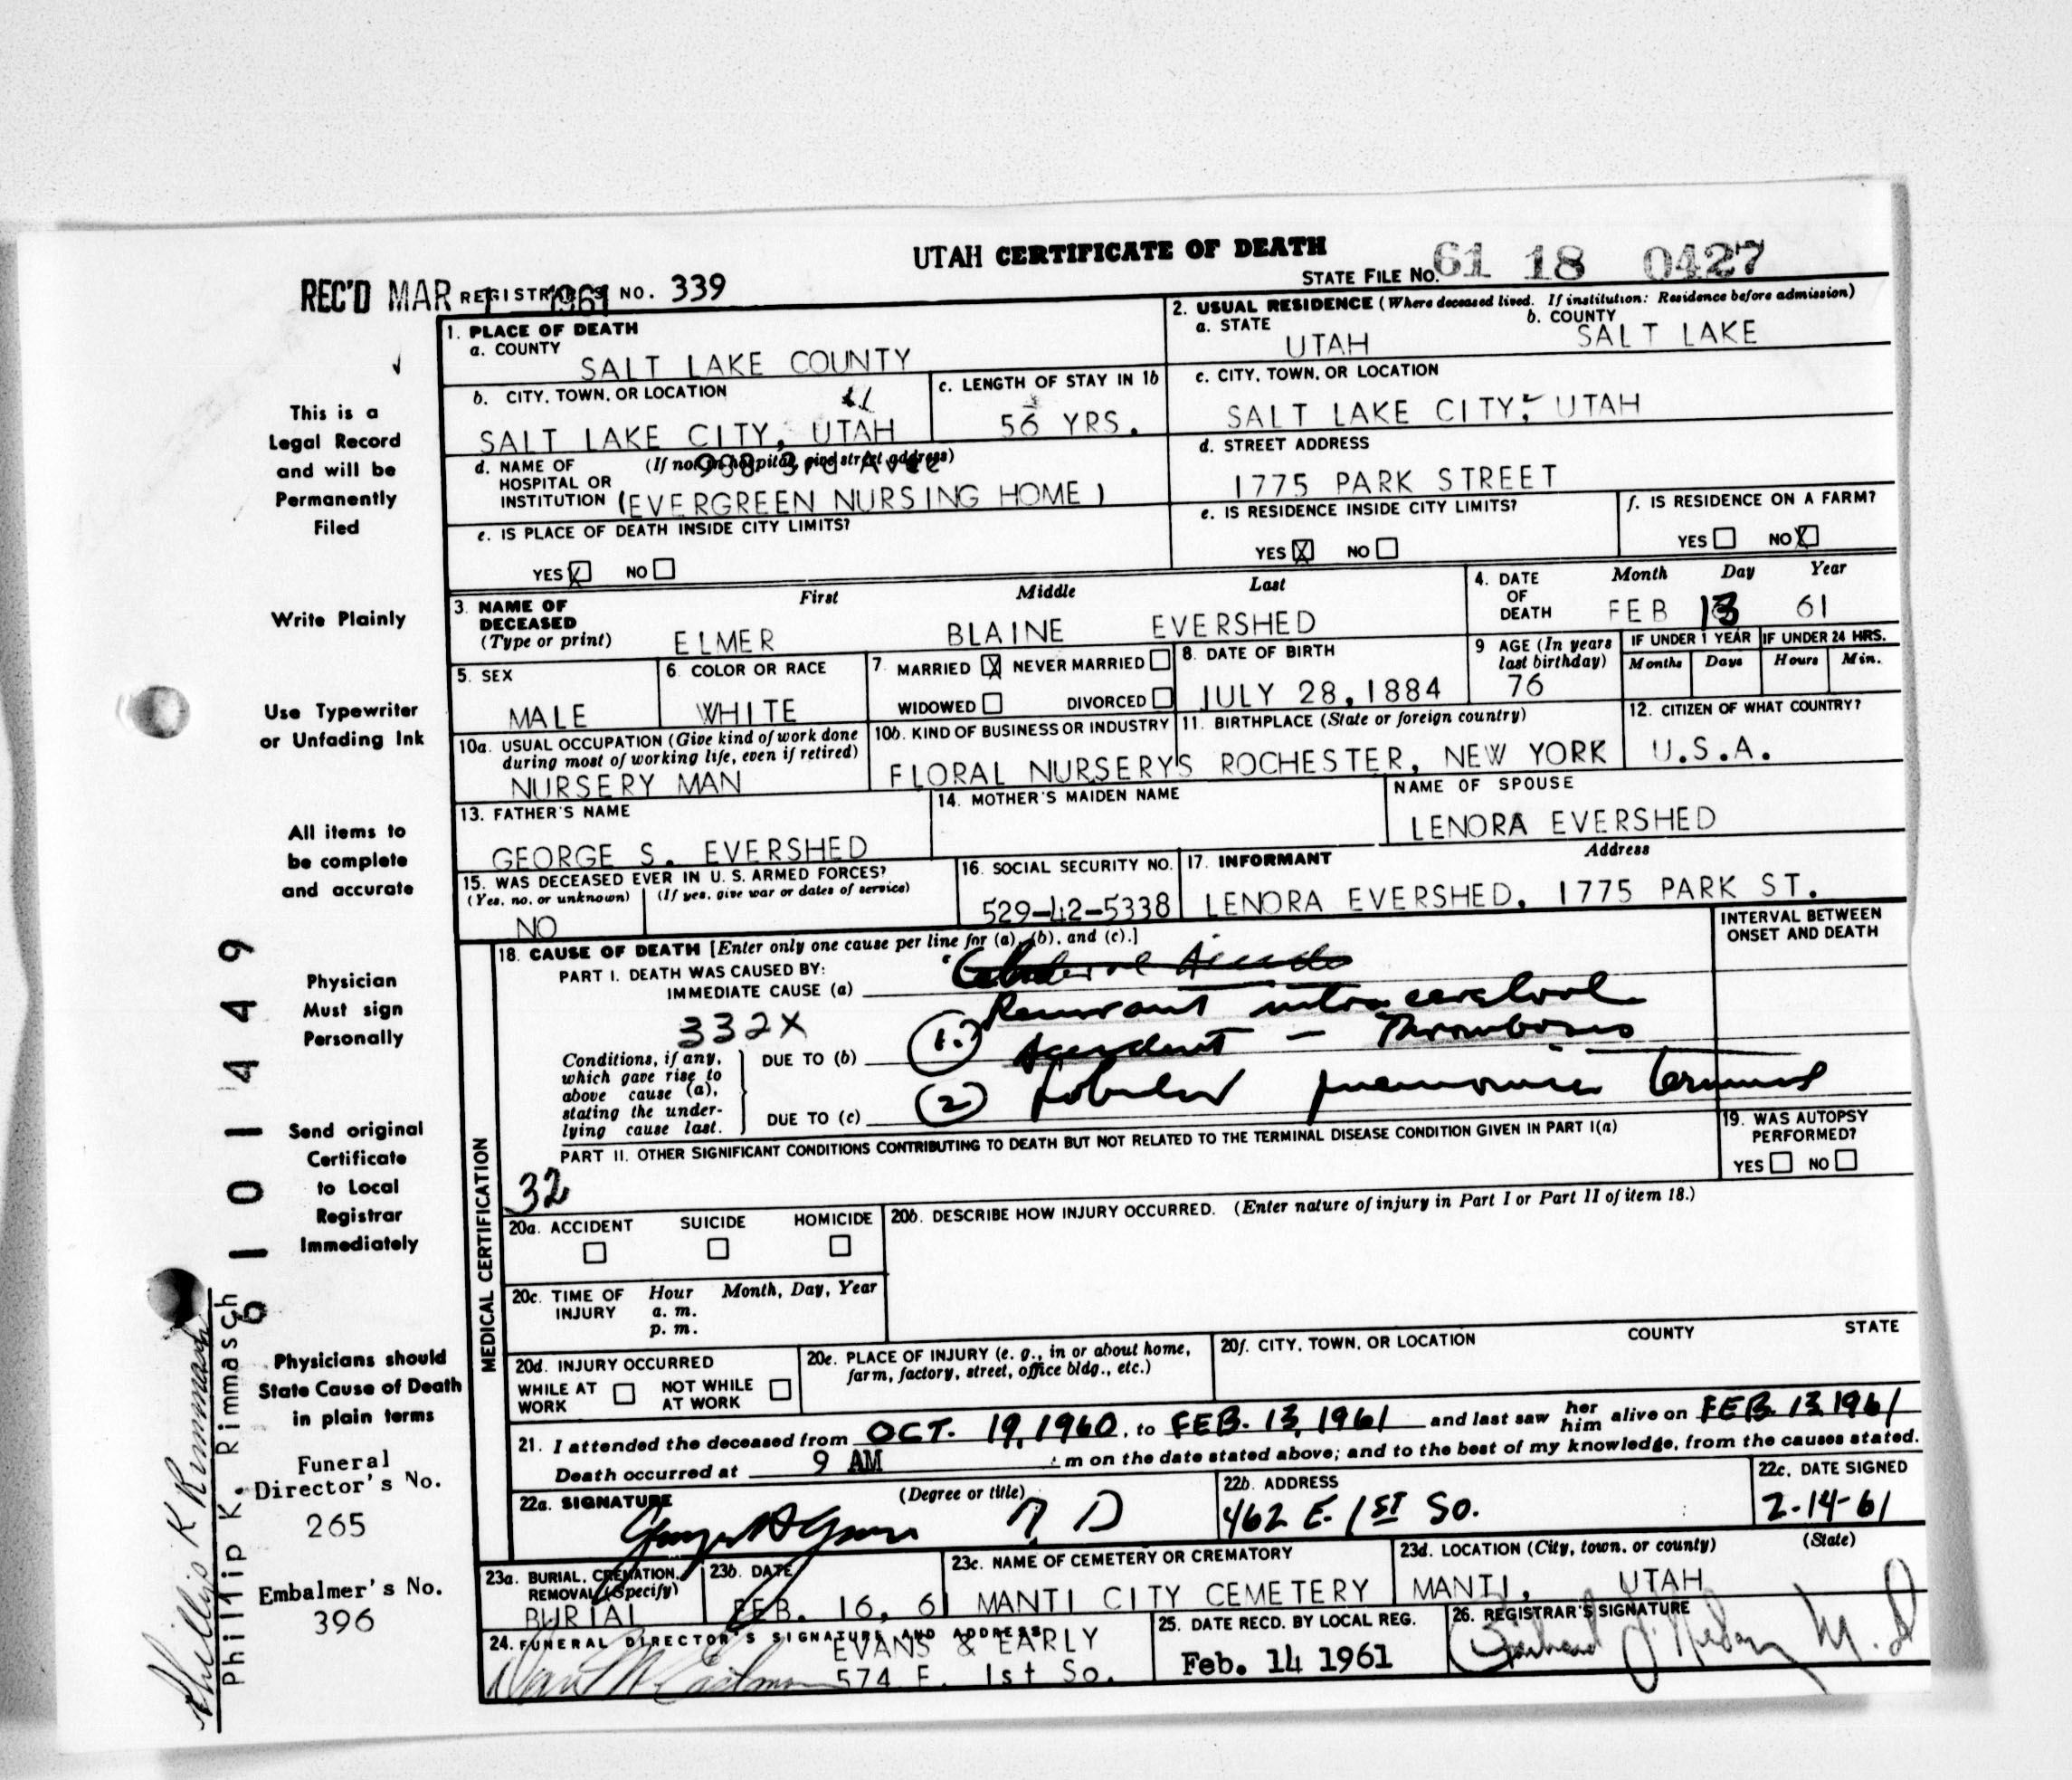 UTAH CERTIFICATE OF DEATH
STATE FILE NO. 61 18 0427
REC'D MAR 1 1961 REGISTRAR'S NO. 339
1. PLACE OF DEATH
a. COUNTY
SALT LAKE COUNTY
b. CITY, TOWN, OR LOCATION
SALT LAKE CITY, UTAH
c. LENGTH OF STAY IN 1b
56 YRS.
d. NAME OF HOSPITAL OR INSTITUTION (If not in hospital, give street address)
988 3rd Ave
(EVERGREEN NURSING HOME)
e. IS PLACE OF DEATH INSIDE CITY LIMITS?
YES X NO
2. USUAL RESIDENCE (Where deceased lived. If institution: Residence before admission)
a. STATE
UTAH
b. COUNTY
SALT LAKE
c. CITY, TOWN, OR LOCATION
SALT LAKE CITY, UTAH
d. STREET ADDRESS
1775 PARK STREET
e. IS RESIDENCE INSIDE CITY LIMITS?
YES X NO
f. IS RESIDENCE ON A FARM?
YES NO X
3. NAME OF DECEASED (Type or print)
First Middle Last
ELMER BLAINE EVERSHED
4. DATE OF DEATH
Month Day Year
FEB 13 61
5. SEX
MALE
6. COLOR OR RACE
WHITE
7. MARRIED X NEVER MARRIED
WIDOWED DIVORCED
8. DATE OF BIRTH
JULY 28, 1884
9 AGE (In years last birthday)
76
IF UNDER 1 YEAR
Months Days
IF UNDER 24 HRS.
Hours Min.
10a. USUAL OCCUPATION (Give kind of work done during most of working life, even if retired)
NURSERY MAN
10b. KIND OF BUSINESS OR INDUSTRY
FLORAL NURSERY'S
11. BIRTHPLACE (State or foreign country)
ROCHESTER, NEW YORK
12. CITIZEN OF WHAT COUNTRY?
U.S.A.
13. FATHER'S NAME
GEORGE S. EVERSHED
14. MOTHER'S MAIDEN NAME
NAME OF SPOUSE
LENORA EVERSHED
15. WAS DECEASED EVER IN U. S. ARMED FORCES?
(Yes, no, or unknown) (If yes, give war or dates of service)
NO
16. SOCIAL SECURITY NO.
529-42-5338
17. INFORMANT Address
LENORA EVERSHED, 1775 PARK ST.
MEDICAL CERTIFICATION
18. CAUSE OF DEATH [Enter only one cause per line for (a), (b), and (c).]
INTERVAL BETWEEN ONSET AND DEATH
PART I. DEATH WAS CAUSED BY:
IMMEDIATE CAUSE (a)
332X
Recurrent intracerebral
Conditions, if any, which gave rise to above cause (a), stating the underlying cause last.
DUE TO (b) (1.) Accident - Thrombosis
DUE TO (c) (2) Lobular pneumonia terminal
PART II. OTHER SIGNIFICANT CONDITIONS CONTRIBUTING TO DEATH BUT NOT RELATED TO THE TERMINAL DISEASE CONDITION GIVEN IN PART I(a)
32
19. WAS AUTOPSY PERFORMED?
YES NO
20a. ACCIDENT SUICIDE HOMICIDE
20b. DESCRIBE HOW INJURY OCCURRED. (Enter nature of injury in Part I or Part II of item 18.)
20c. TIME OF INJURY Hour Month, Day, Year
a. m.
p. m.
20d. INJURY OCCURRED
WHILE AT WORK NOT WHILE AT WORK
20e. PLACE OF INJURY (e. g., in or about home, farm, factory, street, office bldg., etc.)
20f. CITY, TOWN, OR LOCATION COUNTY STATE
21. I attended the deceased from OCT. 19, 1960, to FEB. 13, 1961 and last saw her him alive on FEB. 13, 1961
Death occurred at 9 AM m on the date stated above; and to the best of my knowledge, from the causes stated.
22a. SIGNATURE (Degree or title)
M D
22b. ADDRESS
462 E. 1ST SO.
22c. DATE SIGNED
2-14-61
23a. BURIAL, CREMATION, REMOVAL (Specify)
BURIAL
23b. DATE
FEB. 16, 61
23c. NAME OF CEMETERY OR CREMATORY
MANTI CITY CEMETERY
23d. LOCATION (City, town, or county) (State)
MANTI, UTAH
24. FUNERAL DIRECTOR'S SIGNATURE AND ADDRESS
EVANS & EARLY
574 E. 1st So.
25. DATE RECD. BY LOCAL REG.
Feb. 14 1961
26. REGISTRAR'S SIGNATURE
M.D
This is a
Legal Record
and will be
Permanently
Filed
Write Plainly
Use Typewriter
or Unfading Ink
All items to
be complete
and accurate
Physician
Must sign
Personally
Send original
Certificate
to Local
Registrar
Immediately
Physicians should
State Cause of Death
in plain terms
Funeral
Director's No.
265
Embalmer's No.
396
6 1 0 1 4 4 9
Phillip K. Rimmasch
Phillip K Rimmasch